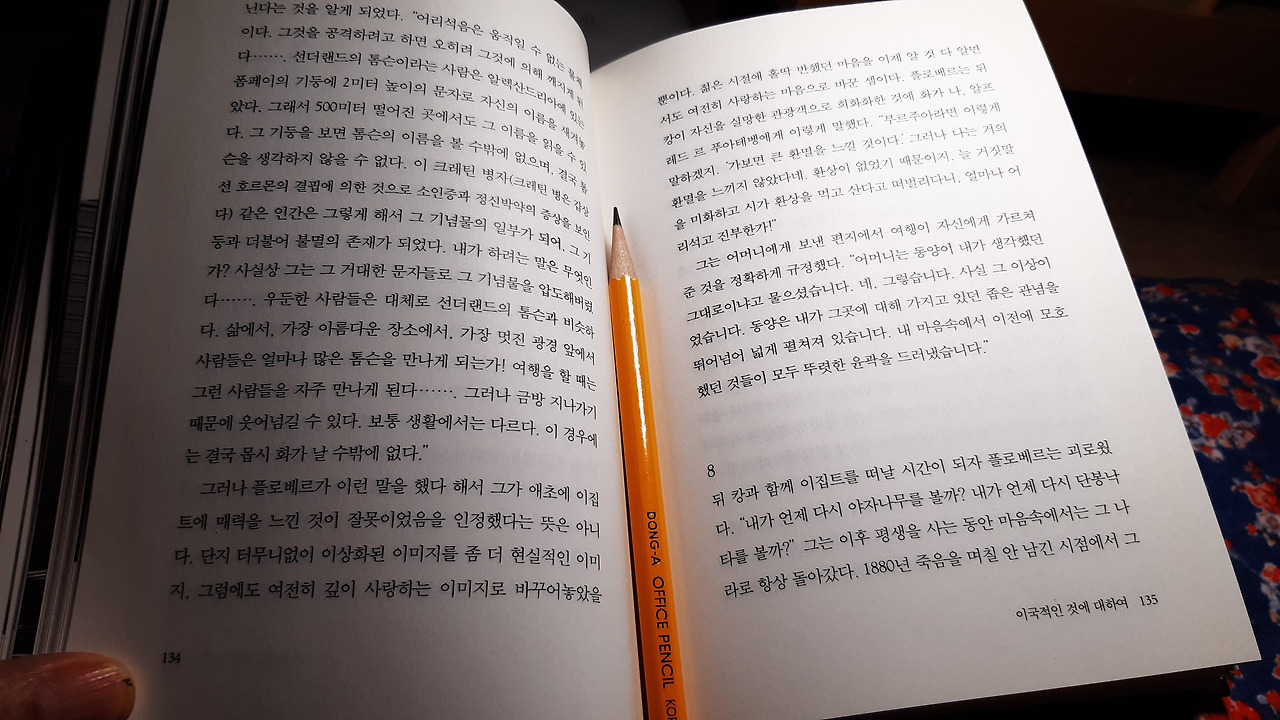 닌다는 것을 알게 되었다. “어리석음은 움직일 수 없는 물체
이다. 그것을 공격하려고 하면 오히려 그것에 의해 깨지게 된
다……. 선더랜드의 톰슨이라는 사람은 알렉산드리아에 있는
폼페이의 기둥에 2미터 높이의 문자로 자신의 이름을 새겨놓
았다. 그래서 500미터 떨어진 곳에서도 그 이름을 읽을 수 있
다. 그 기둥을 보면 톰슨의 이름을 볼 수밖에 없으며, 결국 톰
슨을 생각하지 않을 수 없다. 이 크레틴 병자(크레틴 병은 갑상
선 호르몬의 결핍에 의한 것으로 소인증과 정신박약의 증상을 보인
다) 같은 인간은 그렇게 해서 그 기념물의 일부가 되어, 그 기
둥과 더불어 불멸의 존재가 되었다. 내가 하려는 말은 무엇인
가? 사실상 그는 그 거대한 문자들로 그 기념물을 압도해버렸
다……. 우둔한 사람들은 대체로 선더랜드의 톰슨과 비슷하
다. 삶에서, 가장 아름다운 장소에서, 가장 멋진 광경 앞에서
사람들은 얼마나 많은 톰슨을 만나게 되는가! 여행을 할 때는
그런 사람들을 자주 만나게 된다……. 그러나 금방 지나가기
때문에 웃어넘길 수 있다. 보통 생활에서는 다르다. 이 경우에
는 결국 몹시 화가 날 수밖에 없다.”
그러나 플로베르가 이런 말을 했다 해서 그가 애초에 이집
트에 매력을 느낀 것이 잘못이었음을 인정했다는 뜻은 아니
다. 단지 터무니없이 이상화된 이미지를 좀 더 현실적인 이미
지, 그럼에도 여전히 깊이 사랑하는 이미지로 바꾸어놓았을
134
뿐이다. 젊은 시절에 홀딱 반했던 마음을 이제 알 것 다 알면
서도 여전히 사랑하는 마음으로 바꾼 셈이다. 플로베르는 뒤
캉이 자신을 실망한 관광객으로 희화화한 것에 화가 나, 알프
레드 르 푸아테뱅에게 이렇게 말했다. “부르주아라면 이렇게
말하겠지. ‘가보면 큰 환멸을 느낄 것이다.’ 그러나 나는 거의
환멸을 느끼지 않았다네. 환상이 없었기 때문이지. 늘 거짓말
을 미화하고 시가 환상을 먹고 산다고 떠벌리다니, 얼마나 어
리석고 진부한가!”
그는 어머니에게 보낸 편지에서 여행이 자신에게 가르쳐
준 것을 정확하게 규정했다. “어머니는 동양이 내가 생각했던
그대로이냐고 물으셨습니다. 네, 그렇습니다. 사실 그 이상이
었습니다. 동양은 내가 그곳에 대해 가지고 있던 좁은 관념을
뛰어넘어 넓게 펼쳐져 있습니다. 내 마음속에서 이전에 모호
했던 것들이 모두 뚜렷한 윤곽을 드러냈습니다.”
8
뒤 캉과 함께 이집트를 떠날 시간이 되자 플로베르는 괴로웠
다. “내가 언제 다시 야자나무를 볼까? 내가 언제 다시 단봉낙
타를 볼까?” 그는 이후 평생을 사는 동안 마음속에서는 그 나
라로 항상 돌아갔다. 1880년 죽음을 며칠 안 남긴 시점에서 그
이국적인 것에 대하여 135
DONG-A OFFICE PENCIL